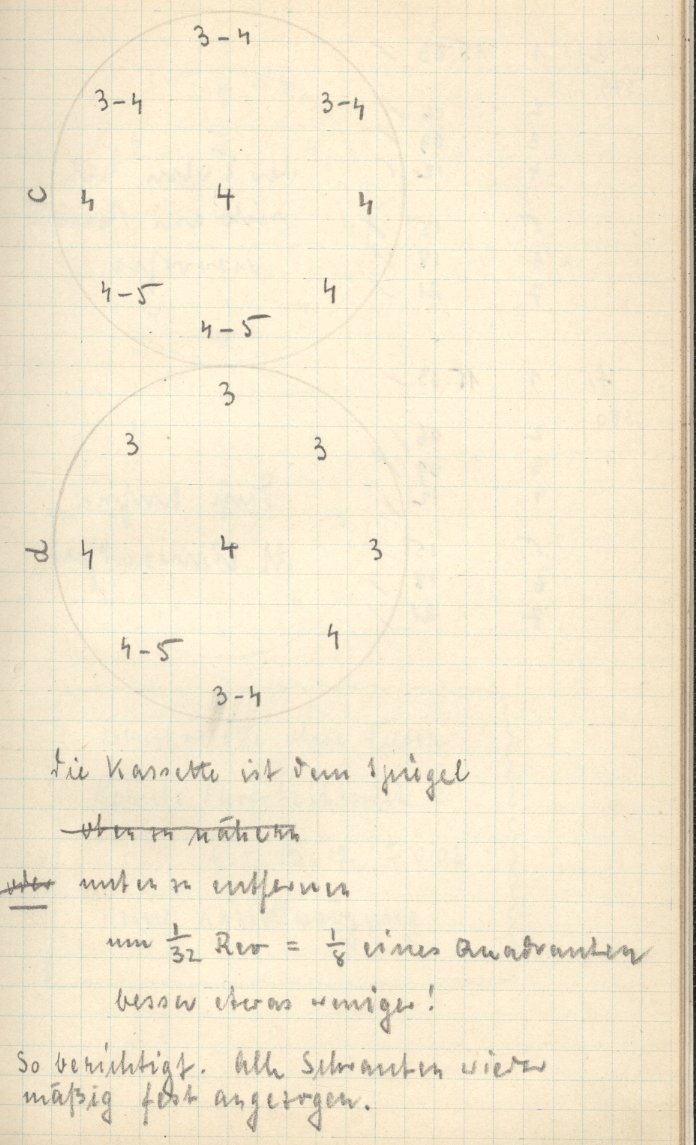 3-4
3-4 3-4
c 4 4 4
4-5 4
4-5
3
3 3
d 4 4 3
4-5 4
3-4
die Kassette ist dem Spiegel
oben zu nähern
oder unten zu entfernen
um 1/32 Rev = 1/8 eines Quadranten
besser etwas weniger!
So berichtigt. Alle Schrauben wieder
mäßig fest angezogen.